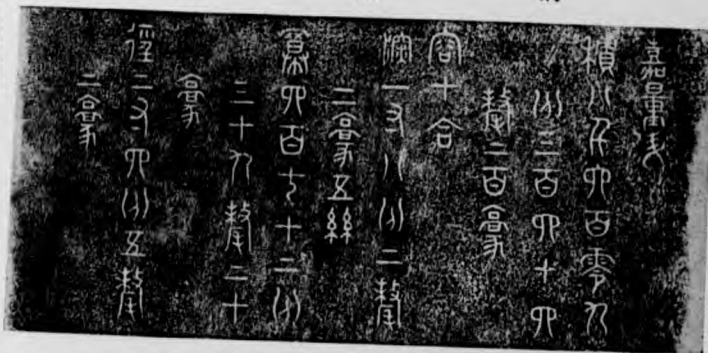 嘉量升
積八千六百零九
分三百四十四
釐二百毫
容十合
深一寸八分二釐
二毫五絲
冪四百七十二分
三十九釐二十
毫
徑二寸四分五釐
二毫